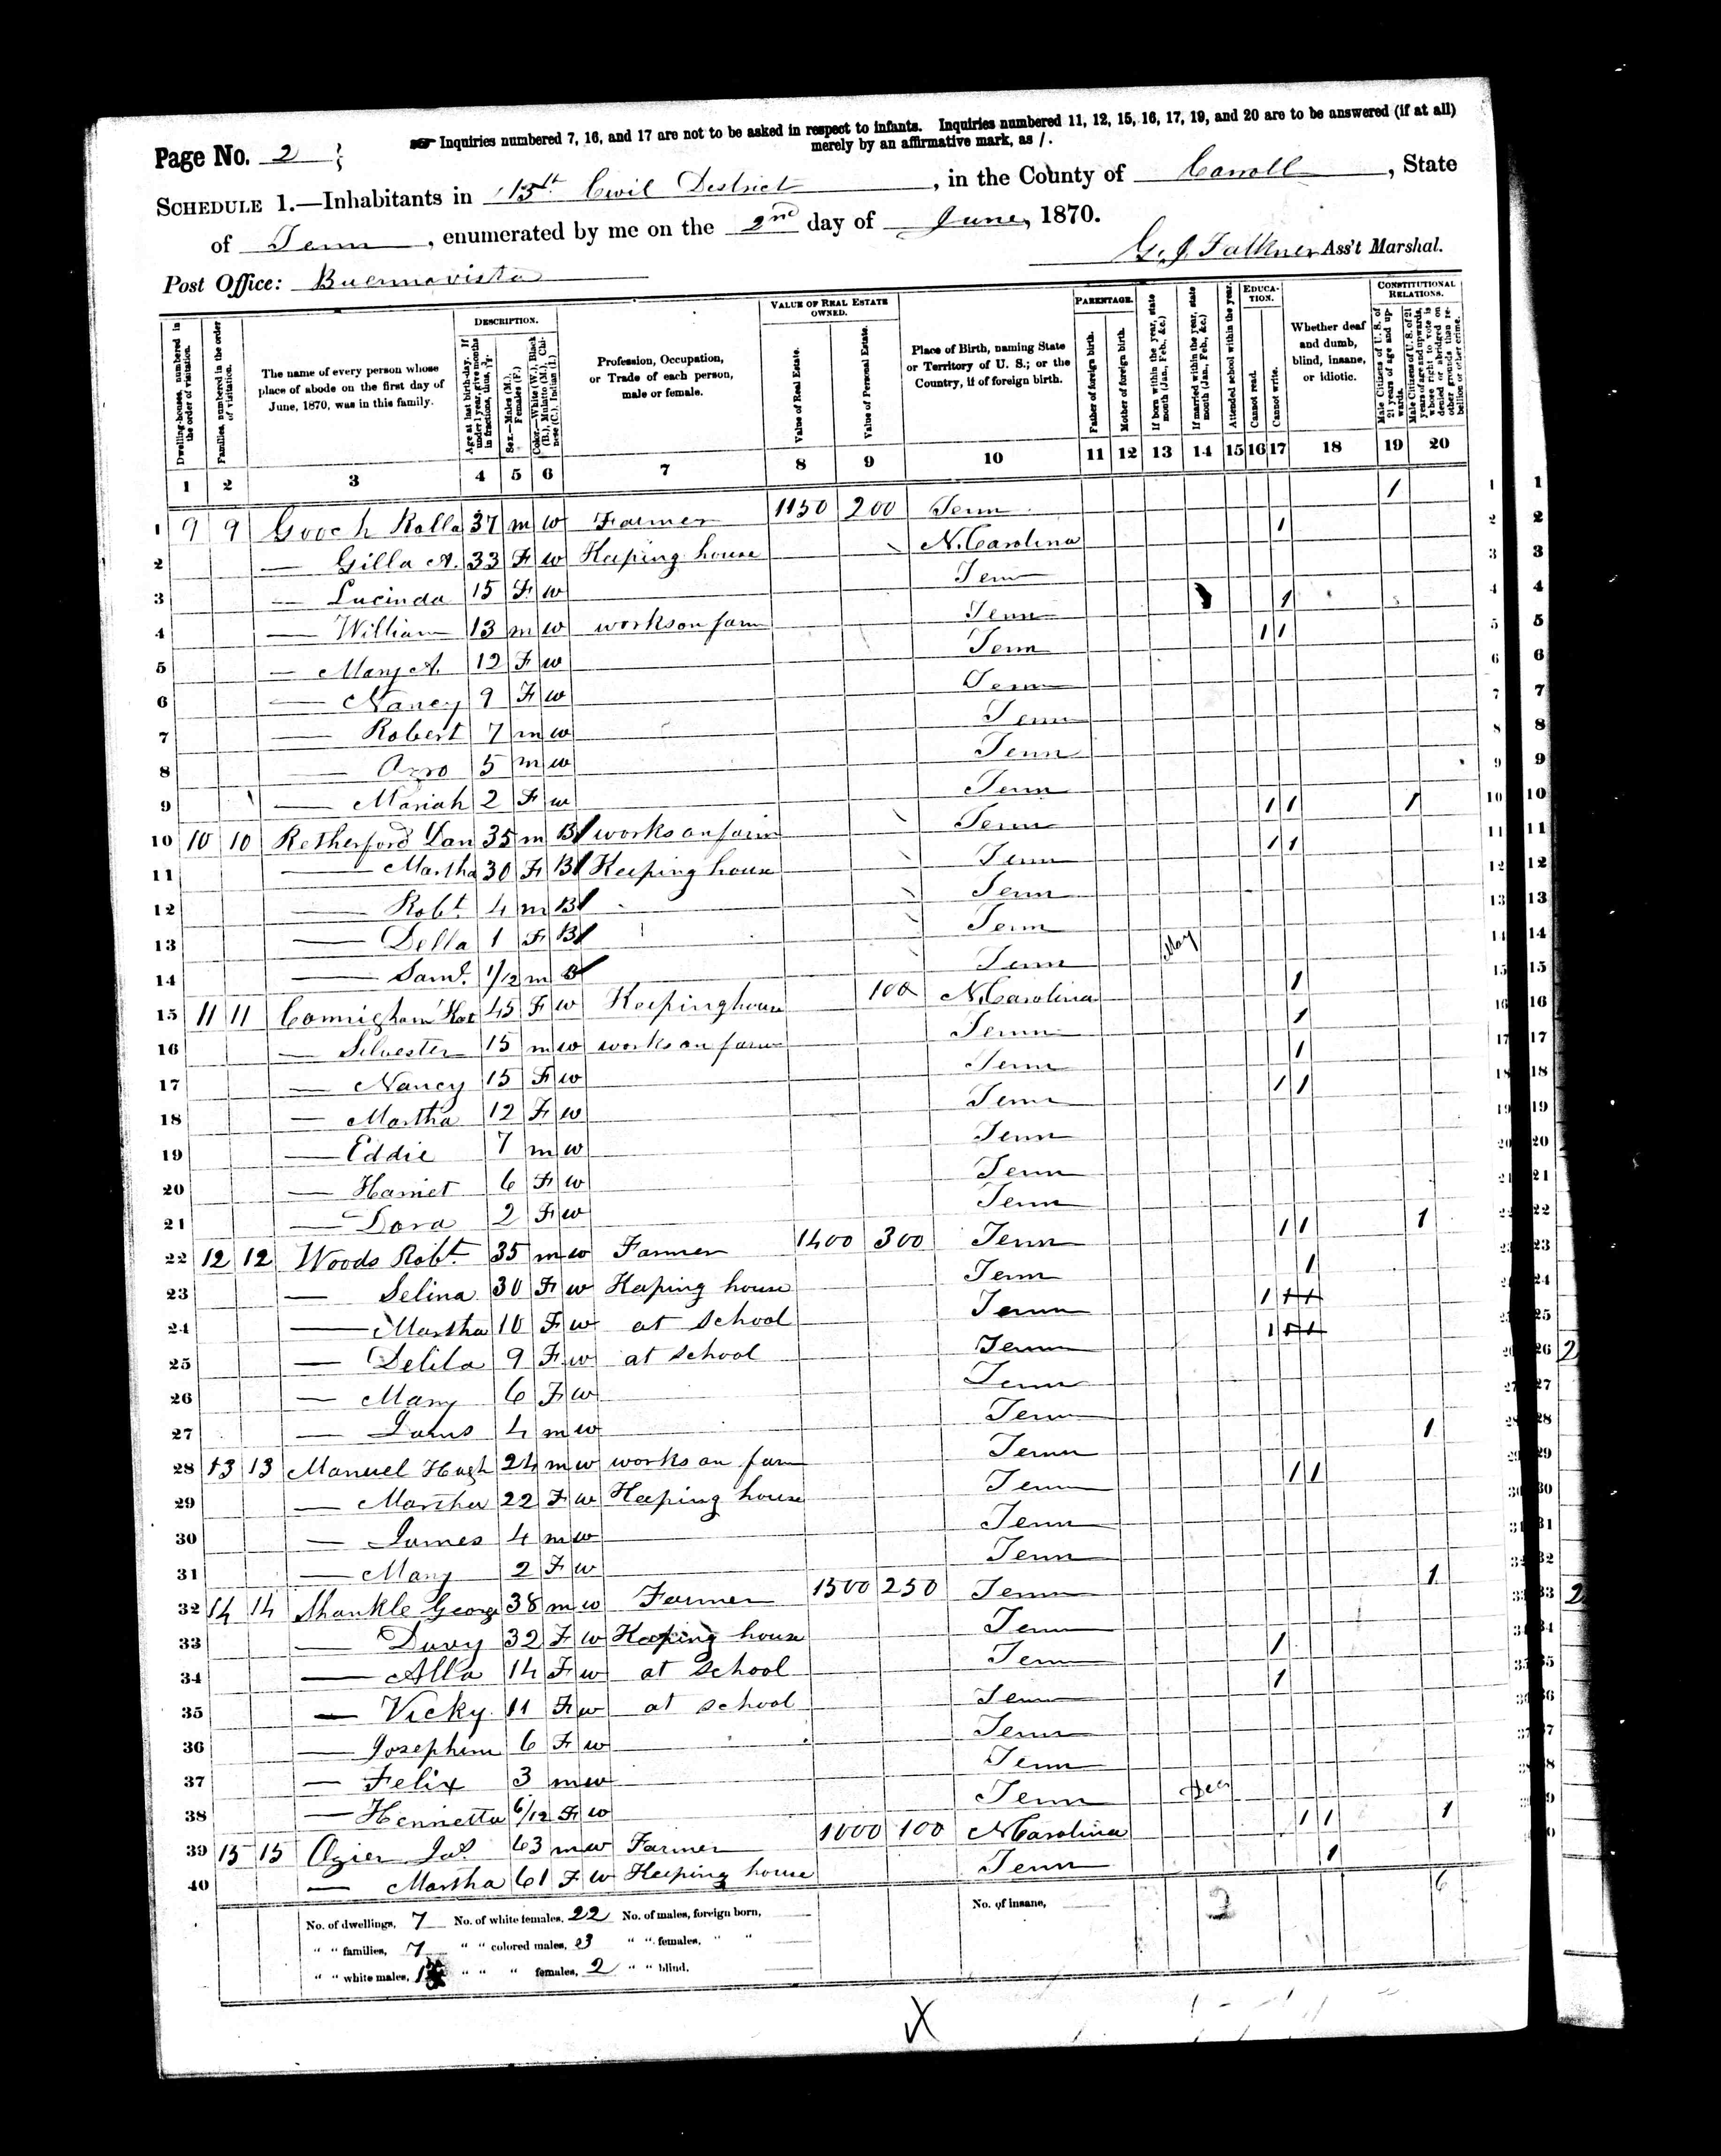 Page No. 2
Inquiries numbered 7, 16, and 17 are not to be asked in respect to infants. Inquiries numbered 11, 12, 15, 16, 17, 19, and 20 are to be answered (if at all)
merely by an affirmative mark, as /.
SCHEDULE 1.—Inhabitants in 13th Civil District, in the County of Carroll, State
of Tenn, enumerated by me on the 2nd day of June, 1870.
G. J. Falkner Ass't Marshal.
Post Office: Buennavista
Dwelling-houses, numbered in the order of visitation.
Families, numbered in the order of visitation.
The name of every person whose place of abode on the first day of June, 1870, was in this family.
DESCRIPTION.
Age at last birth-day. If under 1 year, give months in fractions, thus,
Sex.—Males (M.), Females (F.)
Color.—White (W.), Black (B.), Mulatto (M.), Chinese (C.), Indian (I.)
Profession, Occupation, or Trade of each person, male or female.
VALUE OF REAL ESTATE OWNED.
Value of Real Estate.
Value of Personal Estate.
Place of Birth, naming State or Territory of U. S.; or the Country, if of foreign birth.
PARENTAGE.
Father of foreign birth.
Mother of foreign birth.
If born within the year, state month (Jan., Feb., &c.)
If married within the year, state month (Jan., Feb., &c.)
Attended school within the year.
EDUCATION.
Cannot read.
Cannot write.
Whether deaf and dumb, blind, insane, or idiotic.
CONSTITUTIONAL RELATIONS.
Male Citizens of U. S. of 21 years of age and upwards.
Male Citizens of U. S. of 21 years of age and upwards, whose right to vote is denied or abridged on other grounds than rebellion or other crime.
1 2 3 4 5 6 7 8 9 10 11 12 13 14 15 16 17 18 19 20
1 9 9 Gooch Rolla 37 m w Farmer 1150 200 Tenn 1
2 — Gilla A. 33 F w Keeping house N. Carolina 1
3 — Lucinda 15 F w Tenn
4 — William 13 m w works on farm Tenn 1
5 — Mary A. 12 F w Tenn 1 1
6 — Nancy 9 F w Tenn
7 — Robert 7 m w Tenn
8 — Azro 5 m w Tenn
9 — Mariah 2 F w Tenn
10 10 10 Retherford Dan 35 m B works on farm Tenn 1 1 1
11 — Martha 30 F B Keeping house Tenn 1 1
12 — Robt. 4 m B Tenn
13 — Della 1 F B Tenn
14 — Saml. 1/12 m B Tenn May
15 11 11 45 F w Keeping house 100 N. Carolina 1
16 — Silvester 15 m w works on farm Tenn 1
17 — Nancy 15 F w Tenn 1
18 — Martha 12 F w Tenn 1 1
19 — Eddie 7 m w Tenn
20 — Harriet 6 F w Tenn
21 — Dora 2 F w Tenn
22 12 12 Woods Robt. 35 m w Farmer 1400 300 Tenn 1 1 1
23 — Selina 30 F w Keeping house Tenn 1
24 — Martha 10 F w at school Tenn 1 1 1
25 — Delila 9 F w at school Tenn 1 1 1
26 — Mary 6 F w Tenn
27 — 4 m w Tenn
28 13 13 Manuel Hugh 24 m w works on farm Tenn 1
29 — Martha 22 F w Keeping house Tenn 1 1
30 — James 4 m w Tenn
31 — Mary 2 F w Tenn
32 14 14 Shankle George 38 m w Farmer 1500 250 Tenn 1
33 — Dovy 32 F w Keeping house Tenn
34 — Alla 14 F w at school Tenn 1
35 — Vicky 11 F w at school Tenn 1
36 — Josephine 6 F w Tenn
37 — Felix 3 m w Tenn
38 — Henrietta 6/12 F w Tenn Dec
39 15 15 Ozier Jas. 63 m w Farmer 1000 100 N Carolina 1 1 1
40 — Martha 61 F w Keeping house Tenn 1
No. of dwellings, 7 No. of white females, 22 No. of males, foreign born, No. of insane, 6
" " families, 7 " " colored males, 3 " " females, " "
" " white males, " " " females, 2 " " blind,